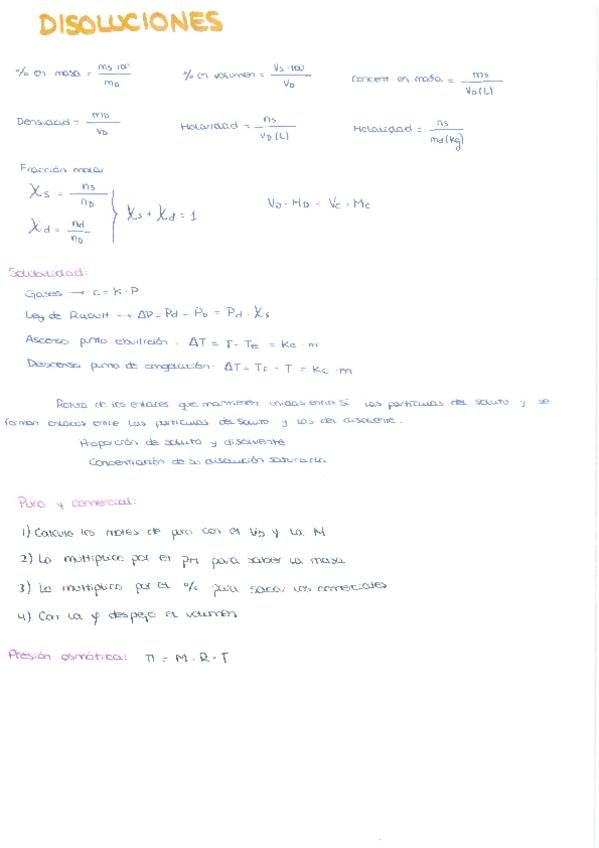 DISOLUCIONES
% en masa = ms·100 / mD
% en volumen = Vs·100 / VD
Concent en masa = ms / VD(L)
Densidad = mD / VD
Molaridad = ns / VD(L)
Molalidad = ns / md(kg)
Fracción molar
Xs = ns / nD
Xd = nd / nD
Xs + Xd = 1
VD · MD = Vc · Mc
Solubilidad:
Gases → c = K · P
Ley de Raoult → ΔP = Pd - PD = Pd · Xs
Ascenso punto ebullición · ΔT = T - Te = Ke · m
Descenso punto de congelación · ΔT = Tc - T = Kc · m
Rotura de los enlaces que mantienen unidas entre sí las partículas del soluto y se
forman enlaces entre las partículas del soluto y las del disolvente.
Proporción de soluto y disolvente
Concentración de su disolución saturada
Puro y comercial:
1) Calculo los moles de puro con el VD y la M
2) Lo multiplico por el PM para saber la masa
3) Lo multiplico por el % para sacar los comerciales
4) Con la ρ despejo el volumen
Presión osmótica: π = M · R · T